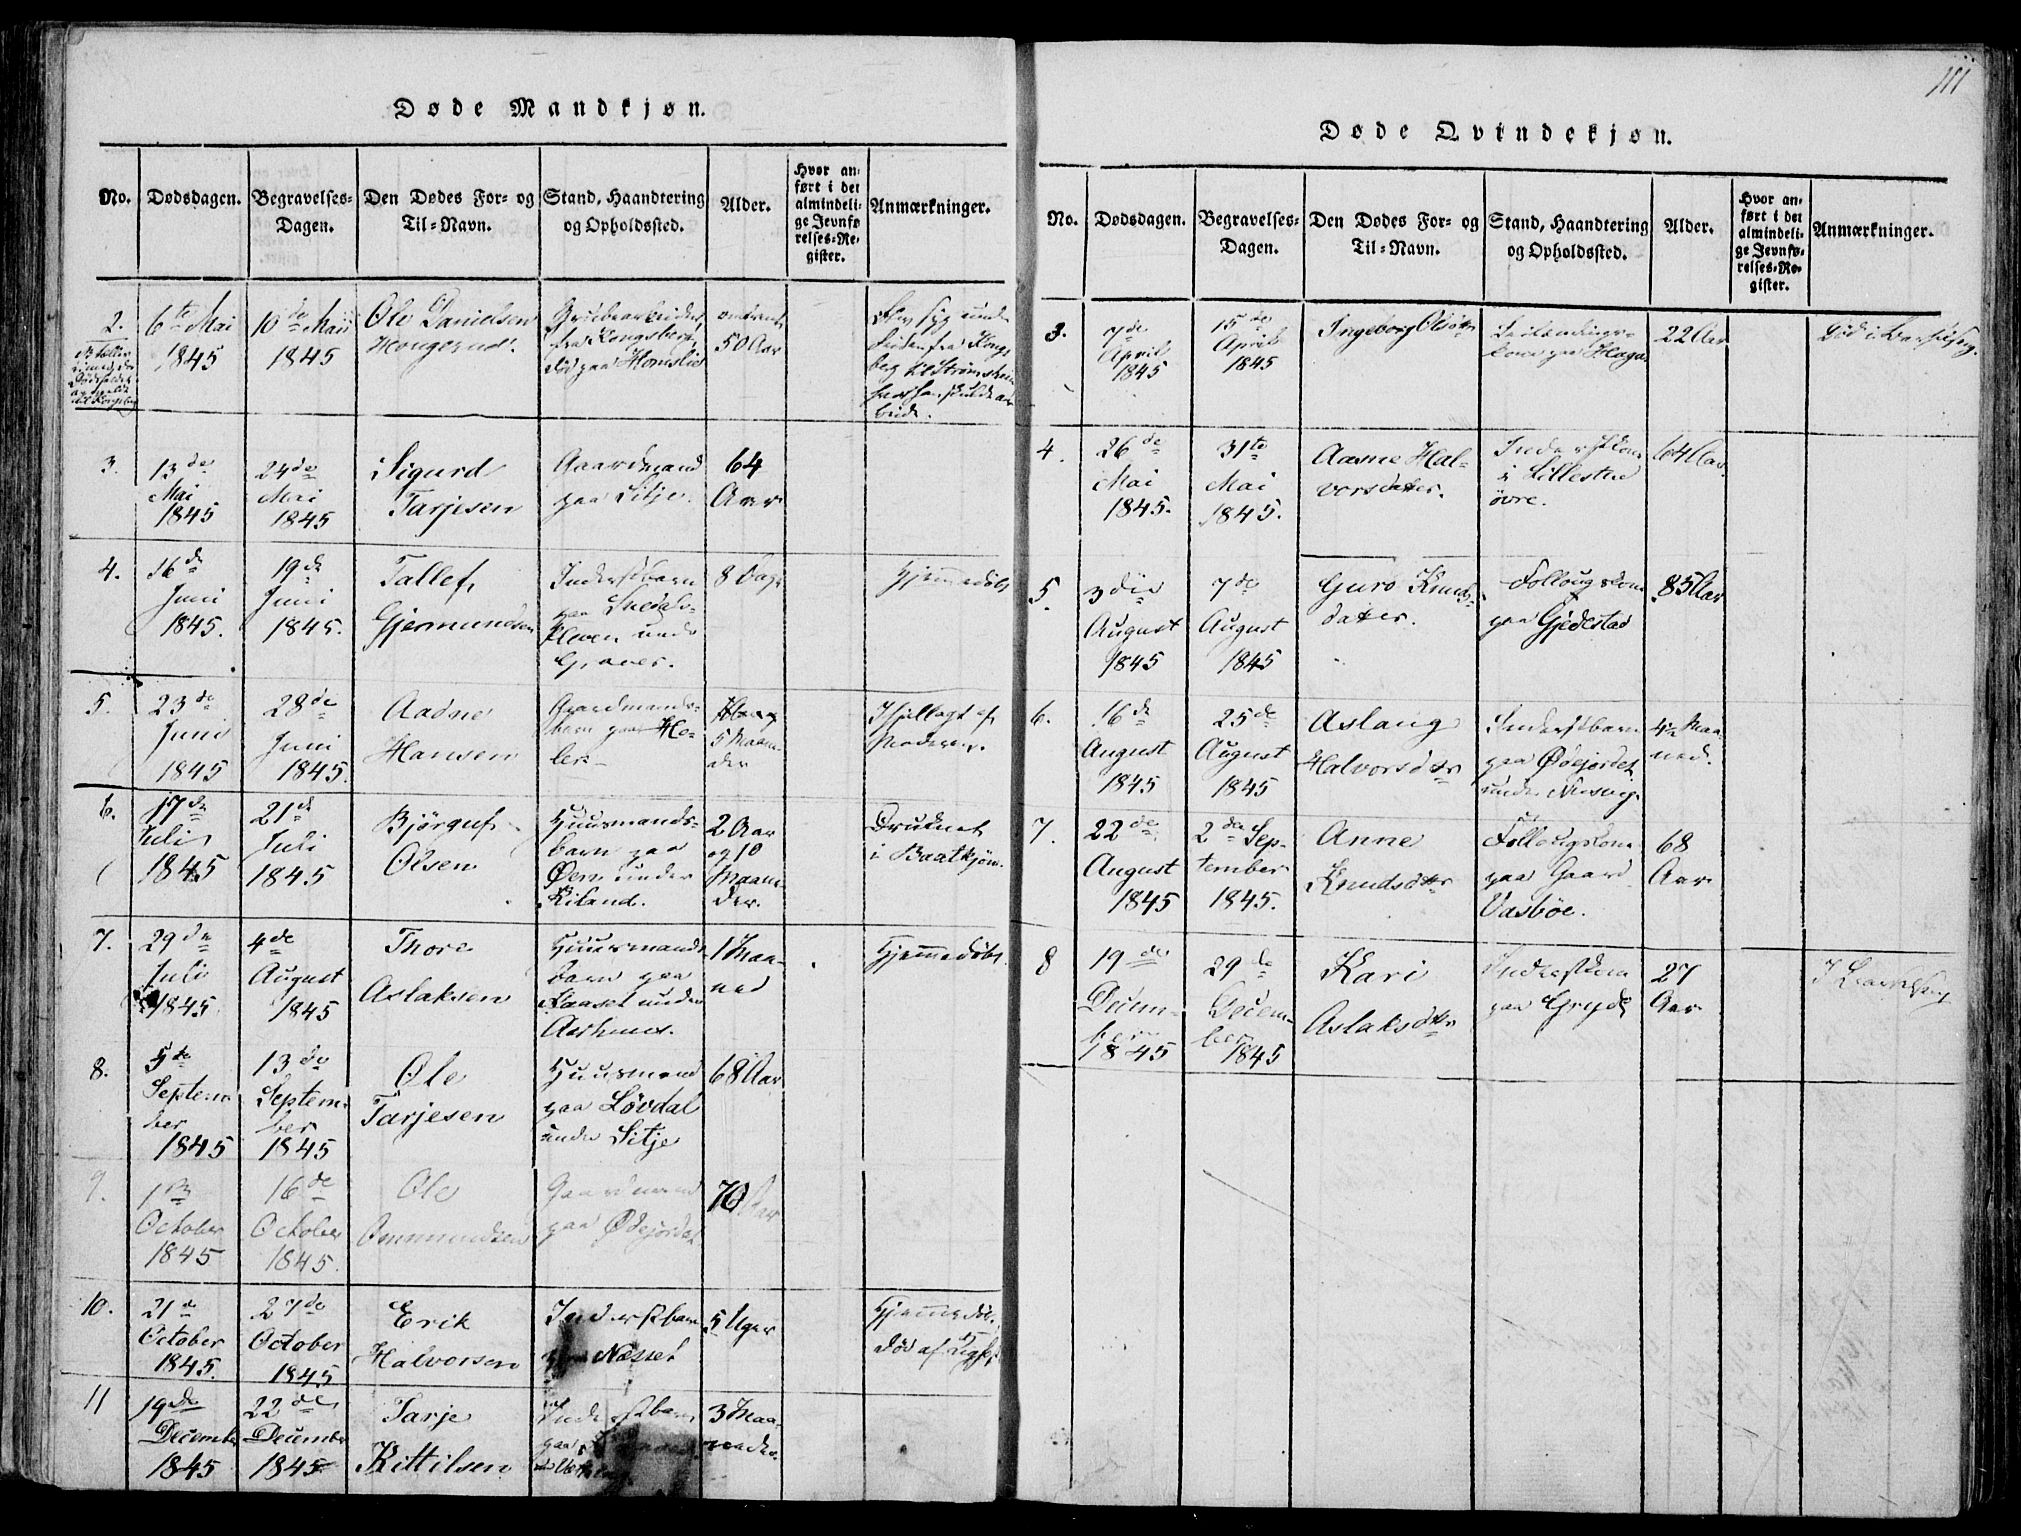 111
Døde Mandkjøn.
No.
Dødsdagen.
Begravelses-
Dagen.
Den Dødes For- og
Til-Navn.
Stand, Haandtering
og Opholdssted.
Alder.
Hvor an-
ført i det
almindeli-
ge Jevnfø-
relses-Re-
gister.
Anmærkninger.
2.
6te Mai
1845
10de Mai
1845
Ole Danielsen
fra Kongsberg,
død paa
omtrent
50 Aar
3.
13de
Mai
1845
24de
Mai
1845
Sigurd
Tarjesen
Gaardmand
paa Sitje.
64
Aar
4.
16de
Juni
1845.
19de
Juni
1845.
Tallef
Gjermundsen
Inderstbarn
paa
Kleven under
8 Dage
Hjemmedøbt
5.
23de
Juni
1845
28de
Juni
1845.
Aadne
Hansen
Gaardmands-
barn paa He-
5 Maane-
der
Ihjellagt af
Moderen.
6.
17de
Juli
1845
21de
Juli
1845
Bjørguf
Olsen
Huusmands-
barn paa
Øen under
Riland.
2 Aar
og 10
Maane-
der.
Druknet
i Baatkjøn.
7.
29de
Juli
1845
4de
August
1845
Thore
Aslaksen
Huusmands-
barn paa
under
1 Maa-
ned
Hjemmedøbt.
8.
5de
Septem-
ber
1845
13de
Septem-
ber
1845
Ole
Tarjesen
Huusmand
paa Løvdal
under Sitje
68 Aar
9.
1ste
October
1845
16de
October
1845.
Ole
Ommundsen
Gaardmand
paa Ødejordet
70 Aar
10.
21de
October
1845.
27de
October
1845
Erik
Halvorsen
Inderstbarn
paa Næsset
5 Uger
Hjemmedøbt.
Død af
11
19de
December
1845
22de
December
1845
Tarje
Kittilsen
Inderstbarn
paa
3 Maa-
neder.
Døde Qvindekjøn.
No.
Dødsdagen.
Begravelses-
Dagen.
Den Dødes For- og
Til-Navn.
Stand, Haandtering
og Opholdssted.
Alder.
Hvor an-
ført i det
almindeli-
ge Jevnfø-
relses-Re-
gister.
Anmærkninger.
3.
7de
April
1845
15de
April
1845
Ingeborg Olsdtr
paa Hagar
22 Aar
Død i Barselseng.
4.
26de
Mai
1845.
31te
Mai
1845.
Aasne Hal-
vorsdatter.
Inderstkone
i Lillestue
øvre.
64 Aar.
5.
3die
August
1845
7de
August
1845
Guro Knuds-
datter.
Follougskone
paa Gjedestad
83 Aar
6.
16de
August
1845
25de
August
1845
Aslaug
Halvorsdtr
Inderstbarn
paa Ødejordet
under
4½ Maa-
ned.
7.
22de
August
1845
2den Sep-
tember
1845.
Anne
Knudsdtr
Follougskone
paa Gaard
Vasbøe.
68
Aar
8
19de
Decem-
ber
1845
29de
Decem-
ber
1845
Kari
Aslaksdtr
Inderstkone
paa Gryde
27
Aar
I Barselseng